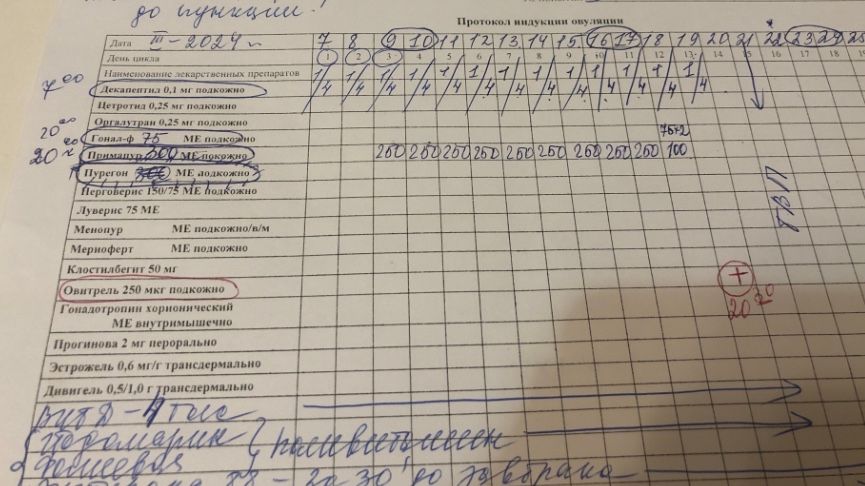 до пункции!
Протокол индукции овуляции
Дата III - 2024 г. 7 8 9 10 11 12 13 14 15 16 17 18 19 20 21 22 23 24 25
День цикла 1 2 3 4 5 6 7 8 9 10 11 12 13 14 15 16 17 18 19
Наименование лекарственных препаратов
7 00 Декапептил 0,1 мг подкожно 1/4 1/4 1/4 1/4 1/4 1/4 1/4 1/4 1/4 1/4 1/4 1/4 1/4
Цетротид 0,25 мг подкожно
Оргалутран 0,25 мг подкожно
20 00 Гонал-ф 75 МЕ подкожно 75+2
20 00 Примапур 300 МЕ покожно 250 250 250 250 250 250 250 250 250 100
Пурегон МЕ подкожно
Перговерис 150/75 МЕ подкожно
Луверис 75 МЕ
Менопур МЕ подкожно/в/м
Мериоферт МЕ подкожно
Клостилбегит 50 мг
Овитрель 250 мкг подкожно + 20 20
Гонадотропин хорионический
МЕ внутримышечно
Прогинова 2 мг перорально
Эстрожель 0,6 мг/г трансдермально
Дивигель 0,5/1,0 г трансдермально
ТВП
Вит Д - 4 тыс
Йодомарин
Фолиевая
поливитамин
за 30' до завтрака